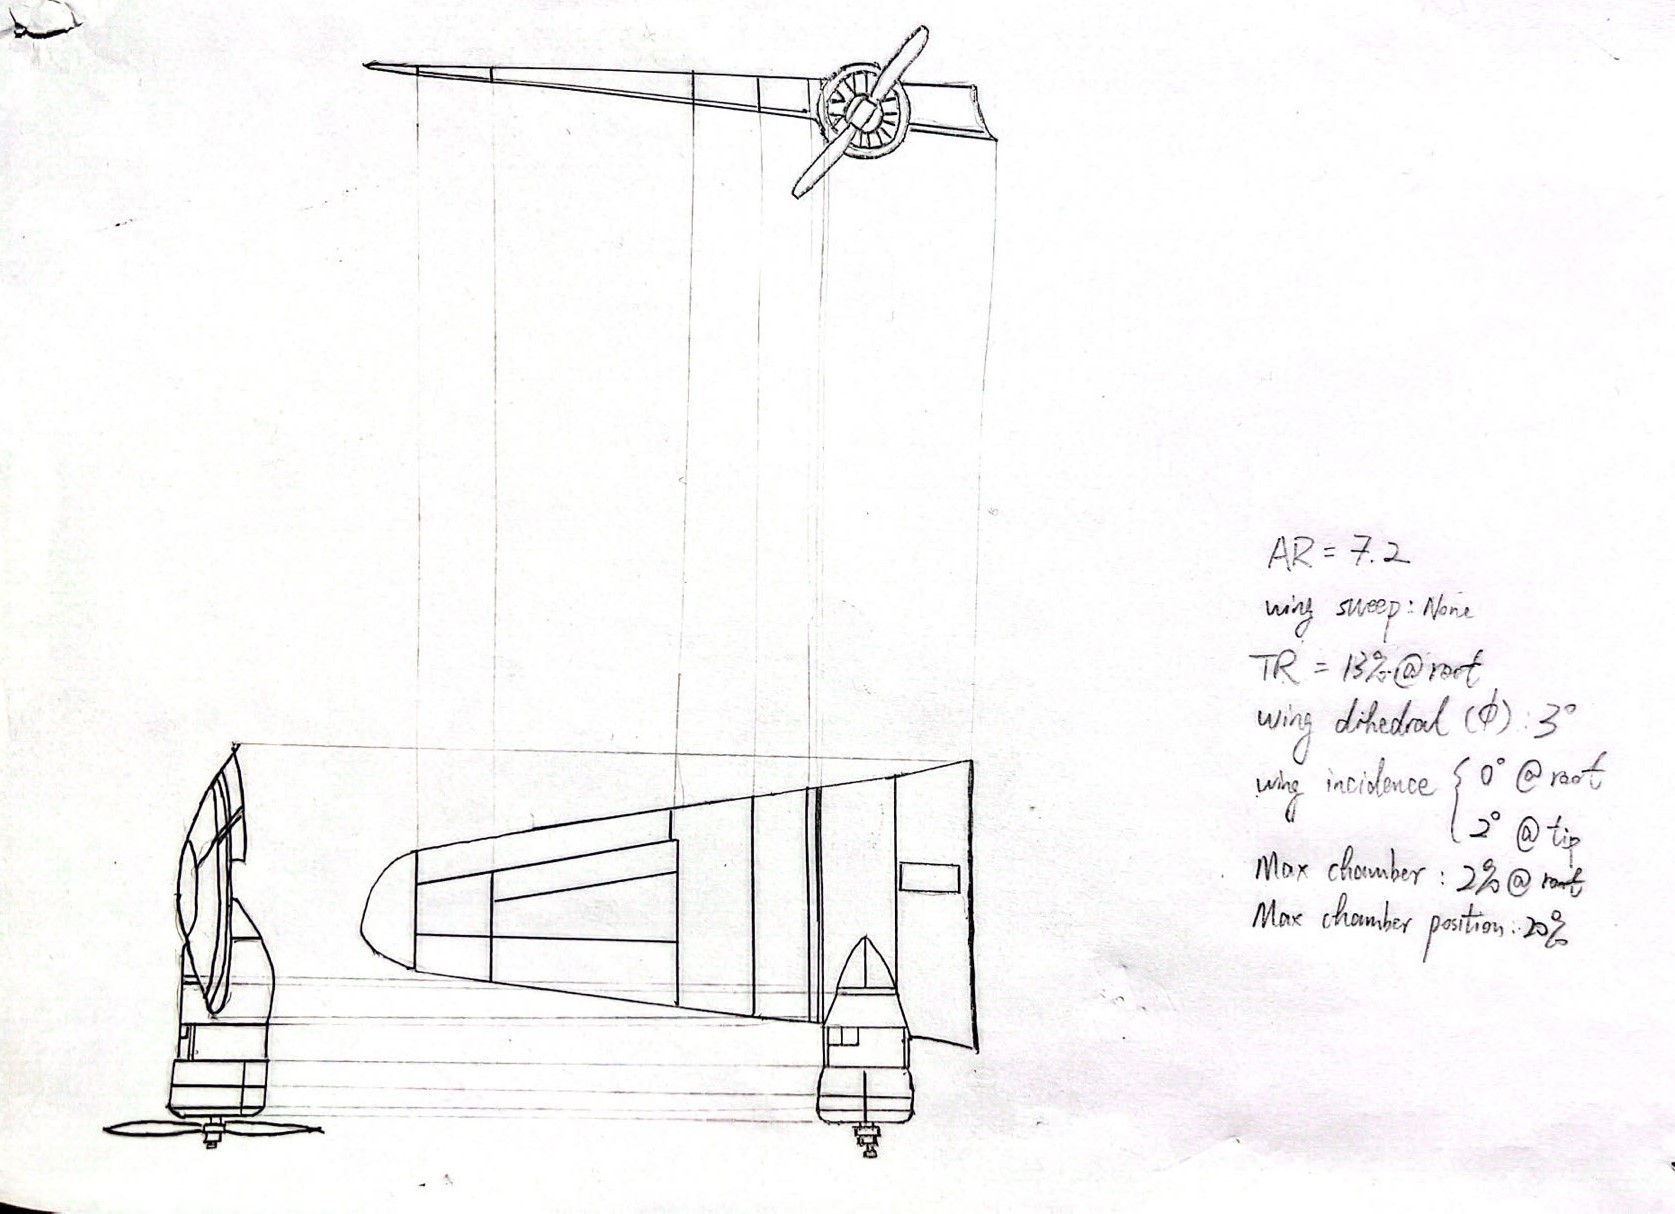 AR = 7.2
wing sweep: None
TR = 13% @ root
wing dihedral (ϕ): 3°
wing incidence { 0° @ root
2° @ tip
Max chamber: 2% @ root
Max chamber position: 20%